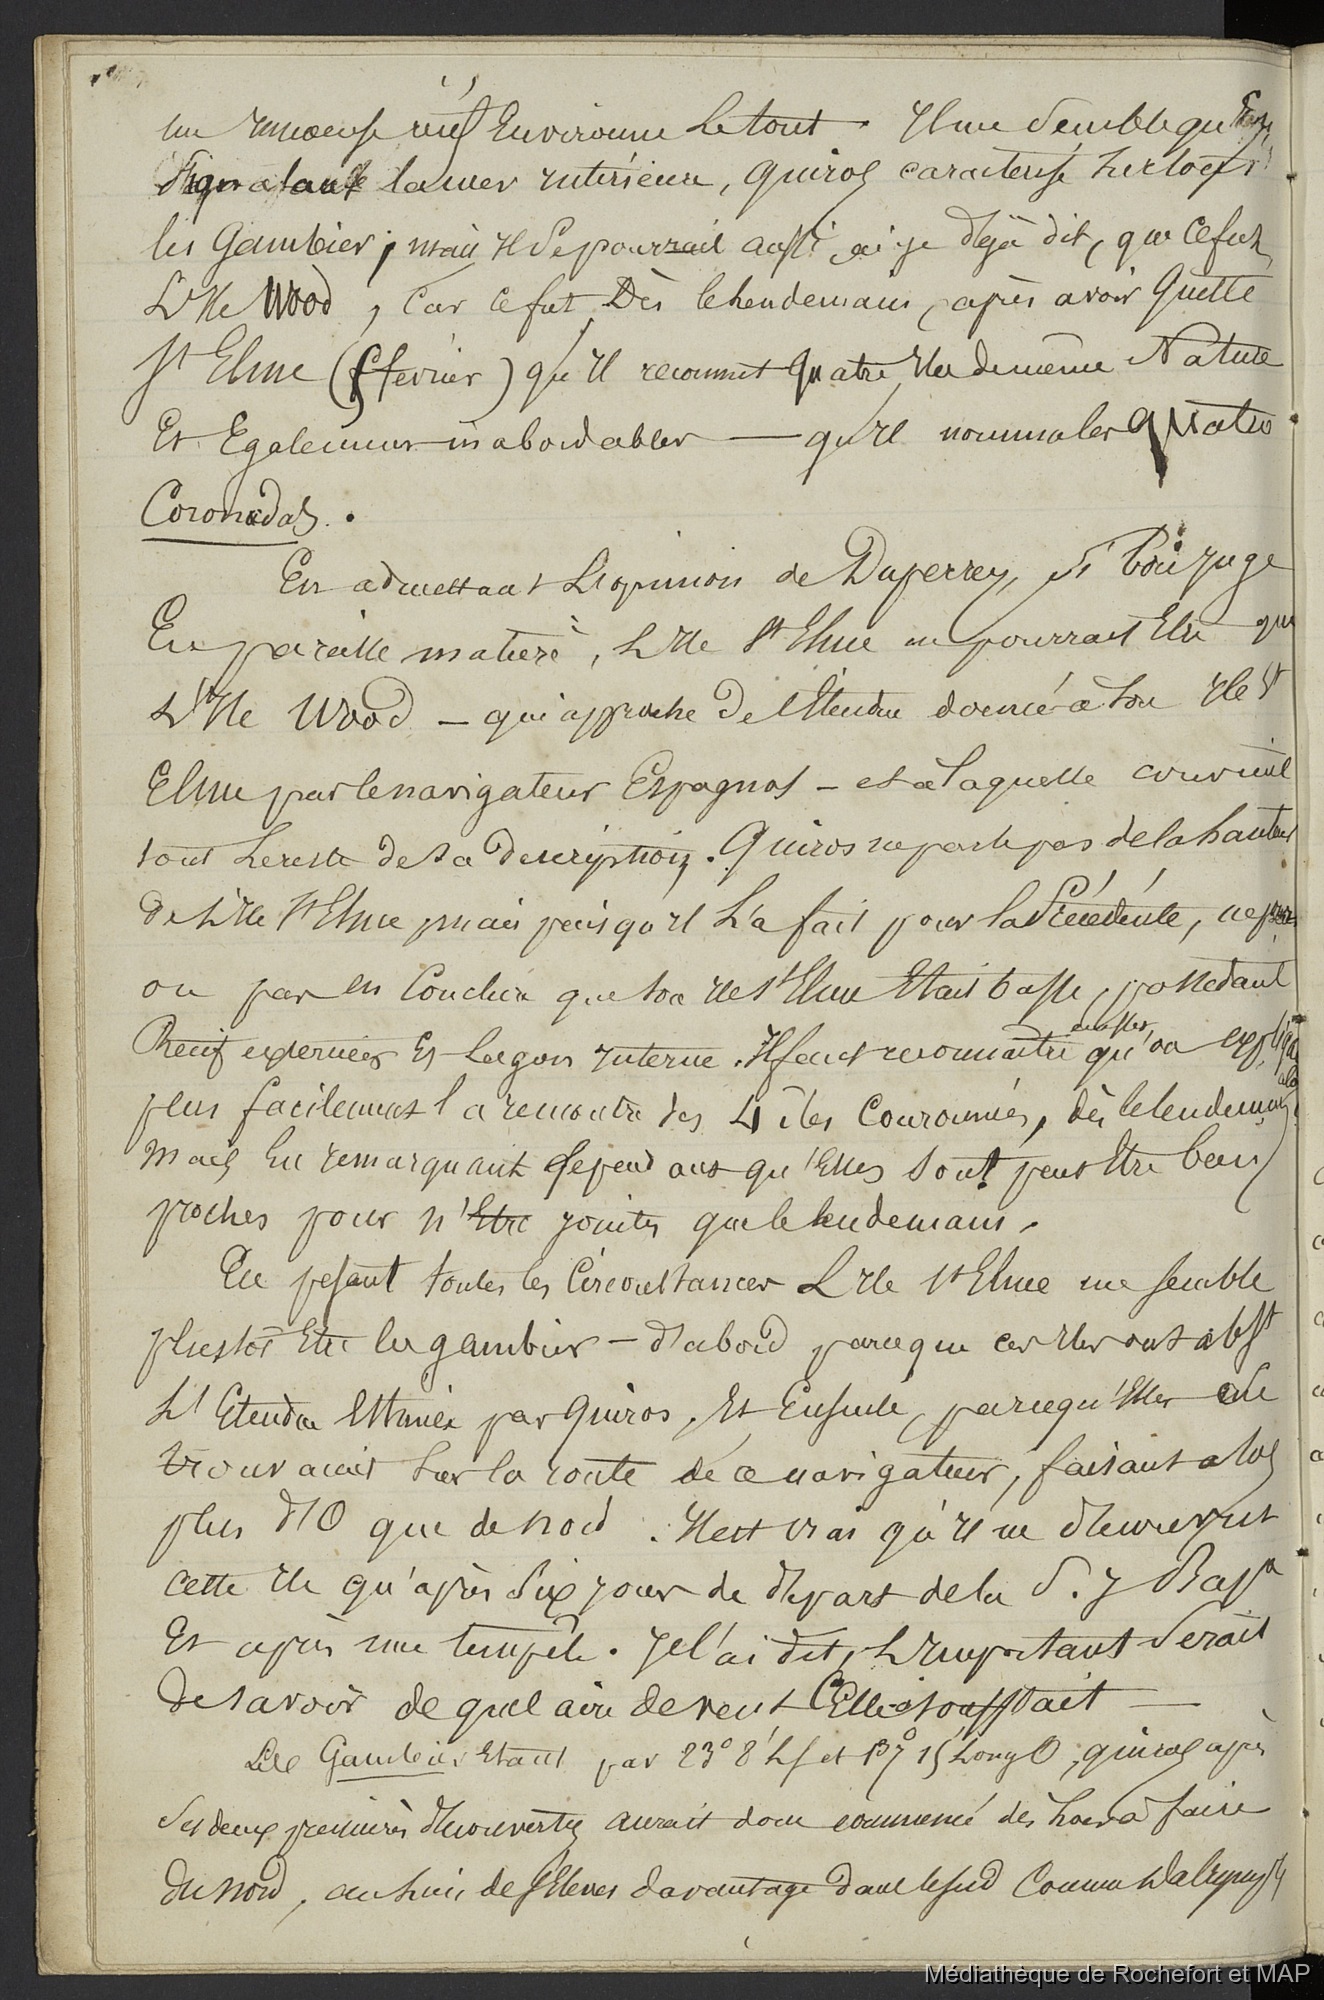 un immense récif Environne Le tout. Il me Semble qu'En
Signalant la mer intérieure, Quiros caractérise
les Gambier; mais Il Se pourrait aussi, ai-je déjà dit, que Ce fut
L'Ile Wood, Car ce fut Dès le lendemain, après avoir Quitté
St Elme (février) qu'Il reconnut Quatre Iles de même Nature
Et Egalement inabordables — qu'Il nomma les Quatro
Coronadas.
En admettant L'opinion de Duperrey, si bon juge
En pareille matière, L'Ile St Elme ne pourrait Etre que
L'Ile Wood — qui approche De l'Etendue donnée à son Ile St
Elme par le navigateur Espagnol — et à laquelle convient
tout Le reste de sa Description. Quiros ne parle pas de la hauteur
de L'Ile St Elme, mais puisqu'Il L'a fait pour la Précédente, ne
on pas en Conclure que son Ile St Elme Etait basse, possédant
Récif externe Et Lagon interne. Il faut reconnaître qu'on
plus facilement la rencontre des 4 îles Couronnées, dès le lendemain
Mais En remarquant Cependant qu'Elles sont peut Etre bien
proches pour n'Etre jointes que le lendemain.
En pesant toutes les Circonstances L'Ile St Elme me semble
plustôt Etre les gambier — d'abord parceque ces Iles ont
L'Etendue Estimée par Quiros, Et Ensuite, parcequ'Elles Se
trouvaient Sur la route de ce navigateur, faisant alors
plus d'O que de nord. Il est vrai qu'Il ne découvrit
cette Ile qu'après Six jours de départ de la S. J Bapa
Et après une tempête. Je l'ai dit, L'Important Serait
De savoir de quel aire de vent Elle soufflait —
Les Gambier Etant par 23° 8' Ls et 137° 15' Long O, quiros après
Ses deux premières découvertes aurait donc commencé dès Lors à faire
Du nord, au Lieu de s'Elever davantage dans le Sud Comme
Médiathèque de Rochefort et MAP